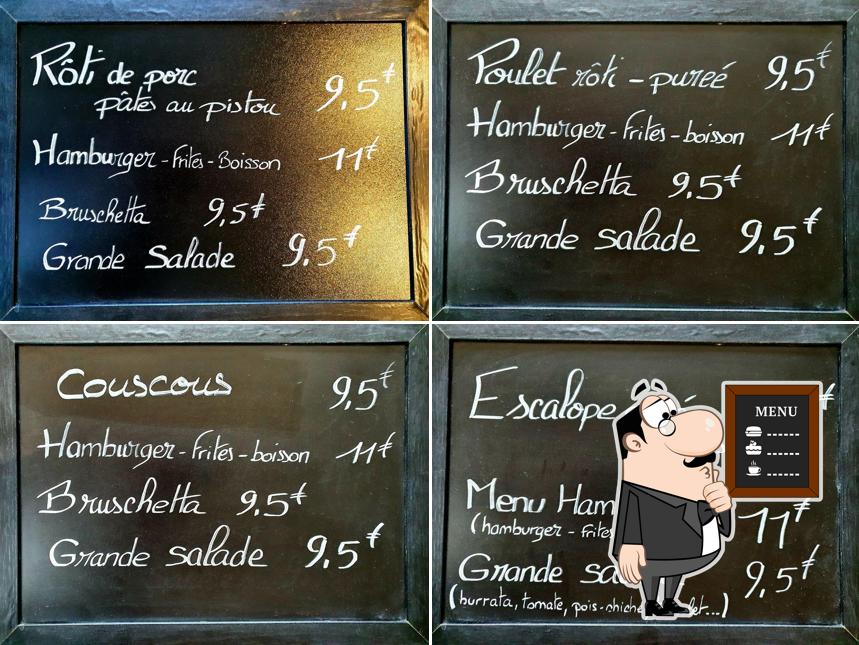 Rôti de porc
pâtes au pistou 9,5€
Hamburger - frites - Boisson 11€
Bruschetta 9,5€
Grande Salade 9,5€
Poulet rôti - pureé 9,5€
Hamburger - frites - boisson 11€
Bruschetta 9,5€
Grande salade 9,5€
Couscous 9,5€
Hamburger - frites - boisson 11€
Bruschetta 9,5€
Grande salade 9,5€
Escalope €
MENU
Menu Ham 11€
(hamburger - frites
Grande sa 9,5€
(burrata, tomate, pois-chiche let...)